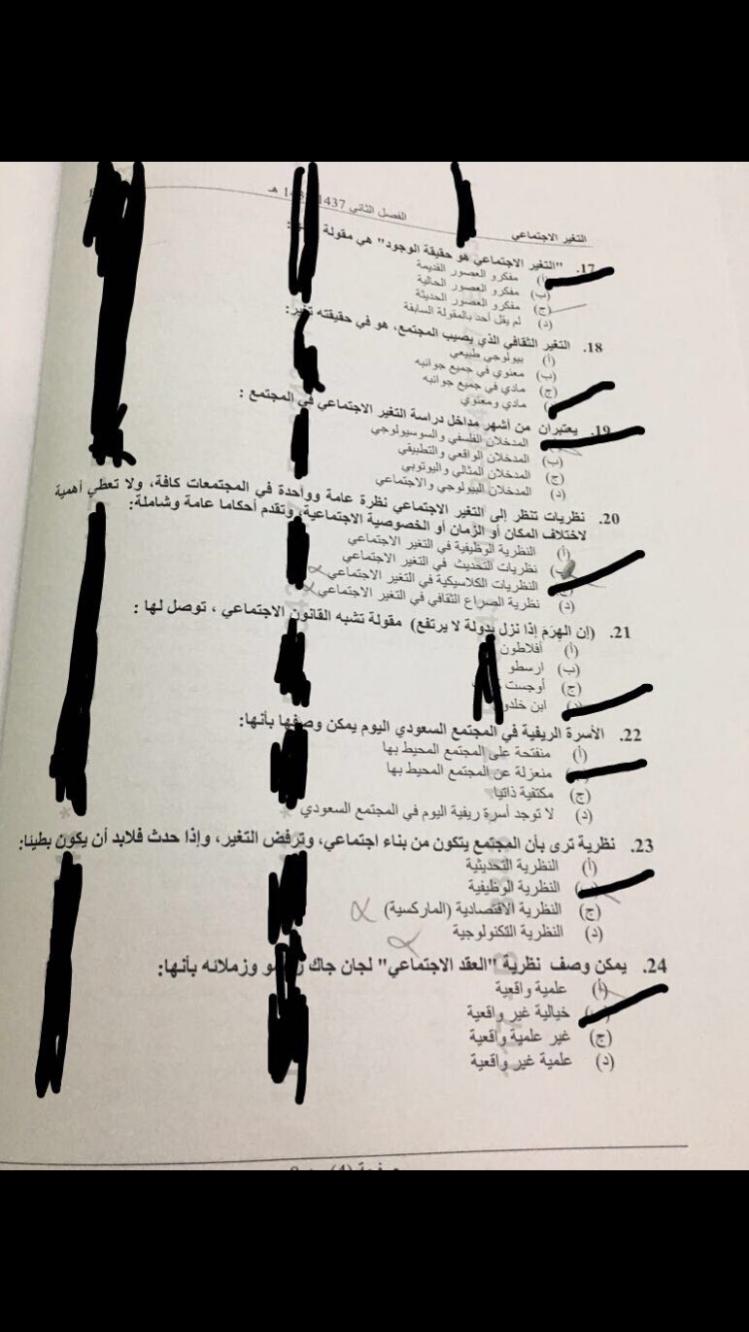 التغير الاجتماعي الفصل الثاني 1437
17. "التغير الاجتماعي هو حقيقة الوجود" هي مقولة
(أ) مفكرو العصور القديمة
(ب) مفكرو العصور الحالية
(ج) مفكرو العصور الحديثة
(د) لم يقل أحد بالمقولة السابقة
18. التغير الثقافي الذي يصيب المجتمع، هو في حقيقته تغير:
(أ) بيولوجي طبيعي
(ب) معنوي في جميع جوانبه
(ج) مادي في جميع جوانبه
مادي ومعنوي
19. يعتبران من أشهر مداخل دراسة التغير الاجتماعي في المجتمع :
المدخلان الفلسفي والسوسيولوجي
(ب) المدخلان الواقعي والتطبيقي
(ج) المدخلان المثالي واليوتوبي
(د) المدخلان البيولوجي والاجتماعي
20. نظريات تنظر إلى التغير الاجتماعي نظرة عامة وواحدة في المجتمعات كافة، ولا تعطي أهمية
لاختلاف المكان أو الزمان أو الخصوصية الاجتماعية، وتقدم أحكاما عامة وشاملة:
(أ) النظرية الوظيفية في التغير الاجتماعي
(ب) نظريات التحديث في التغير الاجتماعي
النظريات الكلاسيكية في التغير الاجتماعي
(د) نظرية الصراع الثقافي في التغير الاجتماعي
21. (إن الهرم إذا نزل بدولة لا يرتفع) مقولة تشبه القانون الاجتماعي ، توصل لها :
(أ) أفلاطون
(ب) ارسطو
(ج) أوجست
(د) ابن خلدو
22. الأسرة الريفية في المجتمع السعودي اليوم يمكن وصفها بأنها:
(أ) منفتحة على المجتمع المحيط بها
منعزلة عن المجتمع المحيط بها
(ج) مكتفية ذاتيا
(د) لا توجد أسرة ريفية اليوم في المجتمع السعودي
23. نظرية ترى بأن المجتمع يتكون من بناء اجتماعي، وترفض التغير، وإذا حدث فلابد أن يكون بطيئا:
(أ) النظرية التحديثية
(ب) النظرية الوظيفية
(ج) النظرية الاقتصادية (الماركسية)
(د) النظرية التكنولوجية
24. يمكن وصف نظرية "العقد الاجتماعي" لجان جاك وزملائه بأنها:
(أ) علمية واقعية
خيالية غير واقعية
(ج) غير علمية واقعية
(د) علمية غير واقعية